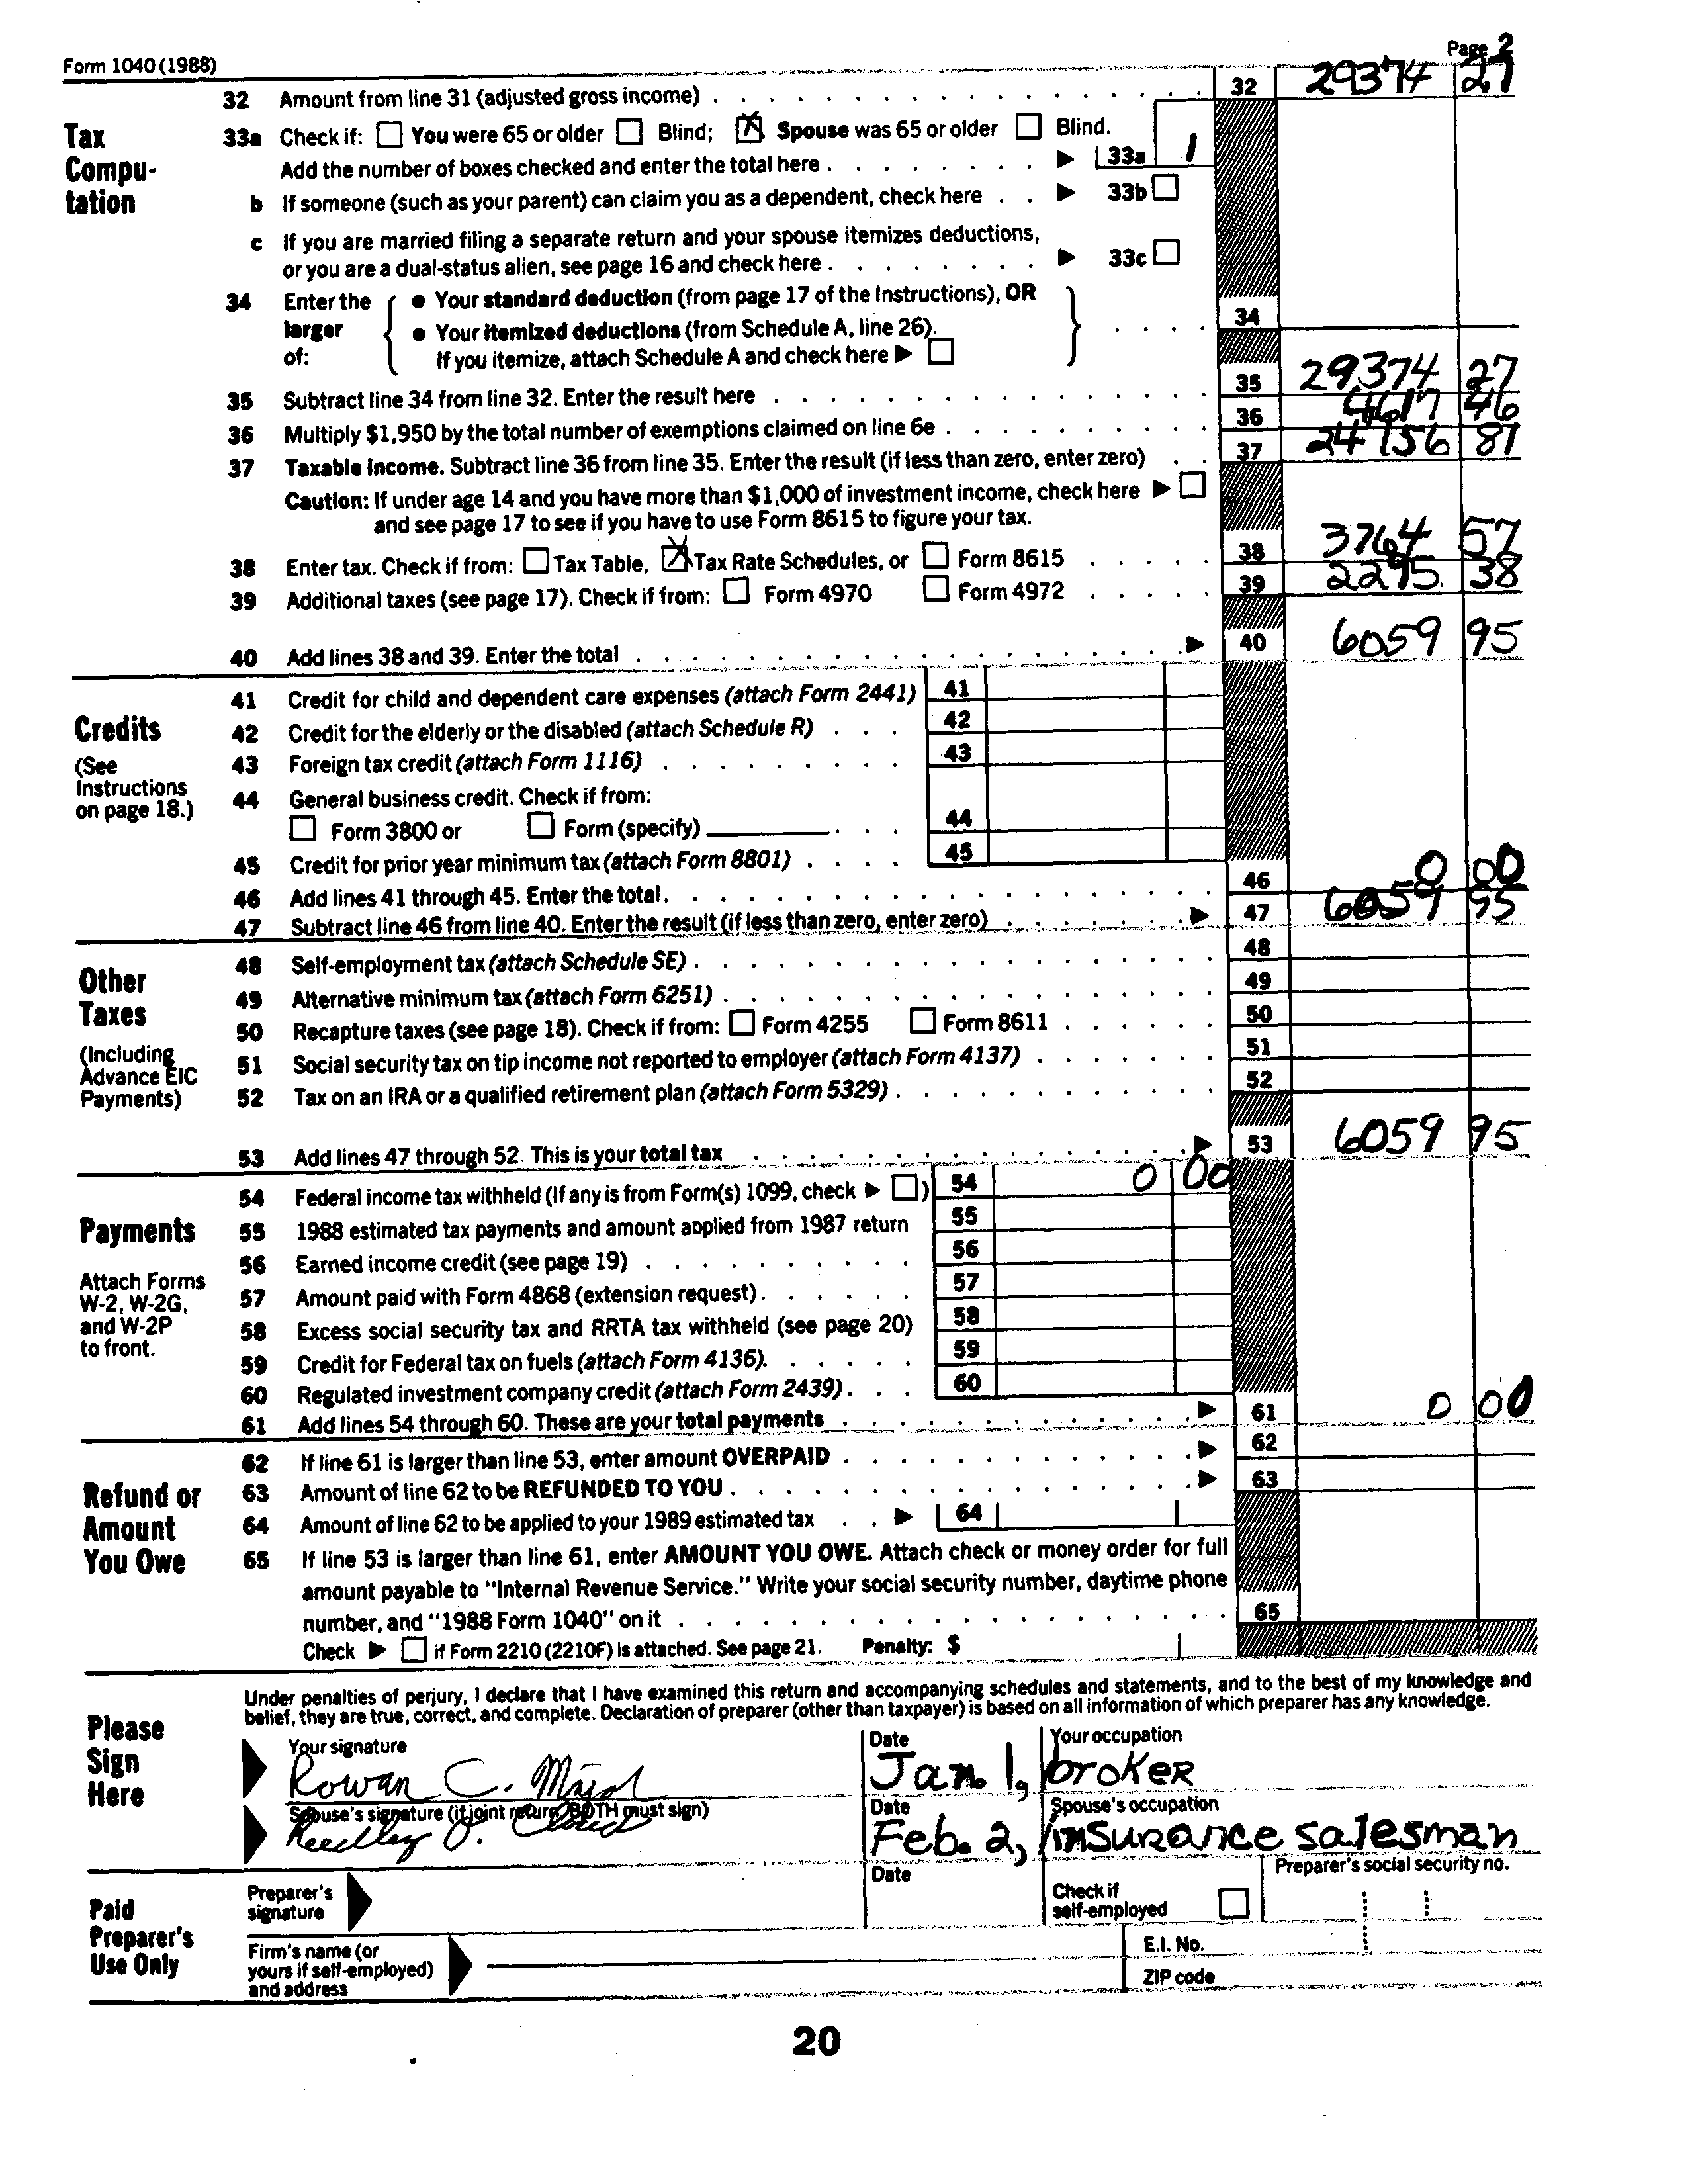 Form 1040 (1988)
Page 2
Tax Compu-tation
32 Amount from line 31 (adjusted gross income) 32 29374 27
33a Check if: You were 65 or older Blind; X Spouse was 65 or older Blind.
Add the number of boxes checked and enter the total here ▶ 33a 1
b If someone (such as your parent) can claim you as a dependent, check here ▶ 33b
c If you are married filing a separate return and your spouse itemizes deductions,
or you are a dual-status alien, see page 16 and check here ▶ 33c
34 Enter the larger of:
● Your standard deduction (from page 17 of the Instructions), OR
● Your itemized deductions (from Schedule A, line 26).
If you itemize, attach Schedule A and check here ▶
34
35 Subtract line 34 from line 32. Enter the result here 35 29374 27
36 Multiply $1,950 by the total number of exemptions claimed on line 6e 36 4617 46
37 Taxable income. Subtract line 36 from line 35. Enter the result (if less than zero, enter zero) 37 24756 81
Caution: If under age 14 and you have more than $1,000 of investment income, check here ▶
and see page 17 to see if you have to use Form 8615 to figure your tax.
38 Enter tax. Check if from: Tax Table, X Tax Rate Schedules, or Form 8615 38 3764 57
39 Additional taxes (see page 17). Check if from: Form 4970 Form 4972 39 2295 38
40 Add lines 38 and 39. Enter the total ▶ 40 6059 95
Credits
(See Instructions on page 18.)
41 Credit for child and dependent care expenses (attach Form 2441) 41
42 Credit for the elderly or the disabled (attach Schedule R) 42
43 Foreign tax credit (attach Form 1116) 43
44 General business credit. Check if from:
Form 3800 or Form (specify) 44
45 Credit for prior year minimum tax (attach Form 8801) 45
46 Add lines 41 through 45. Enter the total 46 0 00
47 Subtract line 46 from line 40. Enter the result (if less than zero, enter zero) ▶ 47 6059 95
Other Taxes
(Including Advance EIC Payments)
48 Self-employment tax (attach Schedule SE) 48
49 Alternative minimum tax (attach Form 6251) 49
50 Recapture taxes (see page 18). Check if from: Form 4255 Form 8611 50
51 Social security tax on tip income not reported to employer (attach Form 4137) 51
52 Tax on an IRA or a qualified retirement plan (attach Form 5329) 52
53 Add lines 47 through 52. This is your total tax ▶ 53 6059 95
Payments
Attach Forms W-2, W-2G, and W-2P to front.
54 Federal income tax withheld (If any is from Form(s) 1099, check ▶ ) 54 0 00
55 1988 estimated tax payments and amount applied from 1987 return 55
56 Earned income credit (see page 19) 56
57 Amount paid with Form 4868 (extension request) 57
58 Excess social security tax and RRTA tax withheld (see page 20) 58
59 Credit for Federal tax on fuels (attach Form 4136) 59
60 Regulated investment company credit (attach Form 2439) 60
61 Add lines 54 through 60. These are your total payments ▶ 61 0 00
Refund or Amount You Owe
62 If line 61 is larger than line 53, enter amount OVERPAID ▶ 62
63 Amount of line 62 to be REFUNDED TO YOU ▶ 63
64 Amount of line 62 to be applied to your 1989 estimated tax ▶ 64
65 If line 53 is larger than line 61, enter AMOUNT YOU OWE. Attach check or money order for full
amount payable to "Internal Revenue Service." Write your social security number, daytime phone
number, and "1988 Form 1040" on it 65
Check ▶ if Form 2210 (2210F) is attached. See page 21. Penalty: $
Please Sign Here
Under penalties of perjury, I declare that I have examined this return and accompanying schedules and statements, and to the best of my knowledge and
belief, they are true, correct, and complete. Declaration of preparer (other than taxpayer) is based on all information of which preparer has any knowledge.
Your signature Date Your occupation
Rowan C. Jan. 1, broker
Spouse's signature (if joint return, BOTH must sign) Date Spouse's occupation
Reedley Feb. 2, insurance salesman
Paid Preparer's Use Only
Preparer's signature Date Check if self-employed Preparer's social security no.
Firm's name (or yours if self-employed) and address
E.I. No.
ZIP code
20